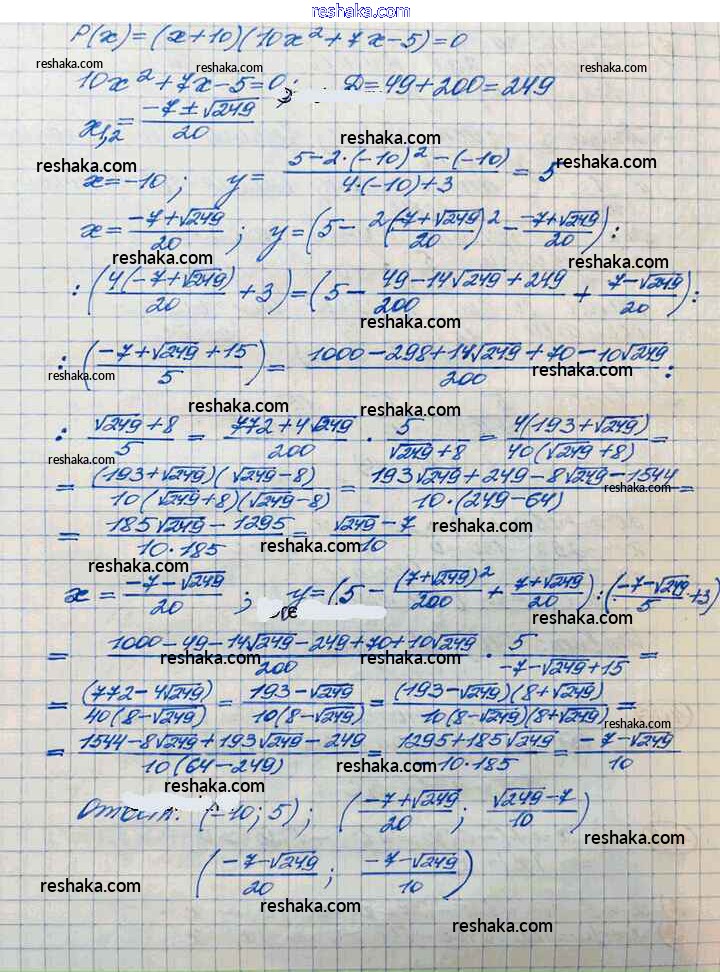 reshaka.com
P(x)=(x+10)(10x²+7x-5)=0
reshaka.com reshaka.com
10x²+7x-5=0; D=49+200=249
x₁,₂=(-7±√249)/20
reshaka.com
reshaka.com reshaka.com
x=-10; y=(5-2·(-10)²-(-10))/(4·(-10)+3)=5
reshaka.com
x=(-7+√249)/20; y=(5-2((-7+√249)/20)²-(-7+√249)/20):
reshaka.com reshaka.com
:(4(-7+√249)/20+3)=(5-(49-14√249+249)/200+(7-√249)/20):
reshaka.com
:((-7+√249+15)/5)=(1000-298+14√249+70-10√249)/200:
reshaka.com reshaka.com
reshaka.com
:(√249+8)/5=(772+4√249)/200·5/(√249+8)=4(193+√249)/(40(√249+8))=
reshaka.com
=(193+√249)(√249-8)/(10(√249+8)(√249-8))=(193√249+249-8√249-1544)/(10·(249-64))=
reshaka.com
=(185√249-1295)/(10·185)=(√249-7)/10
reshaka.com
reshaka.com
x=(-7-√249)/20; y=(5-(7+√249)²/200+(7+√249)/20):((-7-√249)/5+3)
reshaka.com
=(1000-49-14√249-249+70+10√249)/200·5/(-7-√249+15)=
reshaka.com reshaka.com
=(772-4√249)/(40(8-√249))=(193-√249)/(10(8-√249))=(193-√249)(8+√249)/(10(8-√249)(8+√249))=
reshaka.com
=(1544-8√249+193√249-249)/(10(64-249))=(1295+185√249)/(-10·185)=(-7-√249)/10
reshaka.com
reshaka.com
Ответ: (-10; 5); ((-7+√249)/20; (√249-7)/10)
reshaka.com
((-7-√249)/20; (-7-√249)/10)
reshaka.com
reshaka.com
reshaka.com